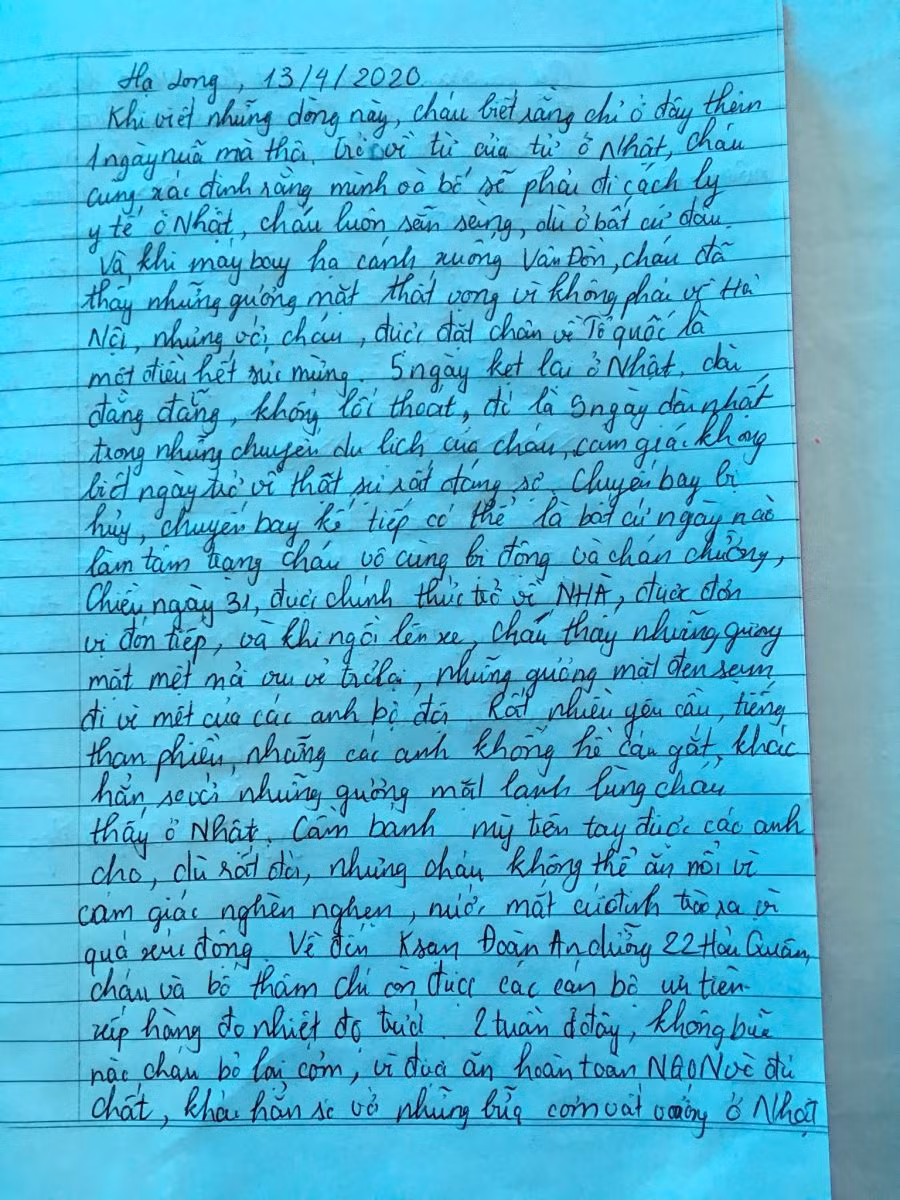 Hạ Long, 13/4/2020.
Khi viết những dòng này, cháu biết rằng chỉ ở đây thêm
1 ngày nuã mà thôi. Trở về từ của tử ở Nhật, cháu
cũng xác định rằng mình và bố sẽ phải đi cách ly
y tế ở Nhật, cháu luôn sẵn sàng, dù ở bất cứ đâu.
Và khi máy bay hạ cánh xuống Vân Đồn, cháu đã
thấy những gương mặt thất vọng vì không phải về Hà
Nội, nhưng với cháu, được đặt chân về Tổ quốc là
một điều hết sức mừng. 5 ngày kẹt lại ở Nhật, dài
đằng đẵng, không lối thoát, đó là 5 ngày dài nhất
trong những chuyến du lịch của cháu, cảm giác không
biết ngày trở về thật sự rất đáng sợ. Chuyến bay bị
hủy, chuyến bay kế tiếp có thể là bất cứ ngày nào
làm tâm trạng cháu vô cùng bị động và chán chường,
Chiều ngày 31, được chính thức trở về NHÀ, được đơn
vị đón tiếp, và khi ngồi lên xe, cháu thấy những gương
mặt mệt mỏi vui vẻ trở lại, những gương mặt đen sạm
đi vì mệt của các anh bộ đội. Rất nhiều yêu cầu, tiếng
than phiền, nhưng các anh không hề cáu gắt, khác
hẳn so với những gương mặt lạnh lùng cháu
thấy ở Nhật. Cầm bánh mỳ trên tay được các anh
cho, dù rất đói, nhưng cháu không thể ăn nổi vì
cảm giác nghèn nghẹn, nước mắt cứ định trào ra vì
quá xúc động. Về đến Ksạn Đoàn An dưỡng 22 Hậu Quân,
cháu và bố thậm chí còn được các cán bộ ưu tiên
xếp hàng đo nhiệt độ trước. 2 tuần ở đây, không bữa
nào cháu bỏ lại cơm, vì được ăn hoàn toàn NGON và đủ
chất, khác hẳn so với những bữa cơm vất vưởng ở Nhật